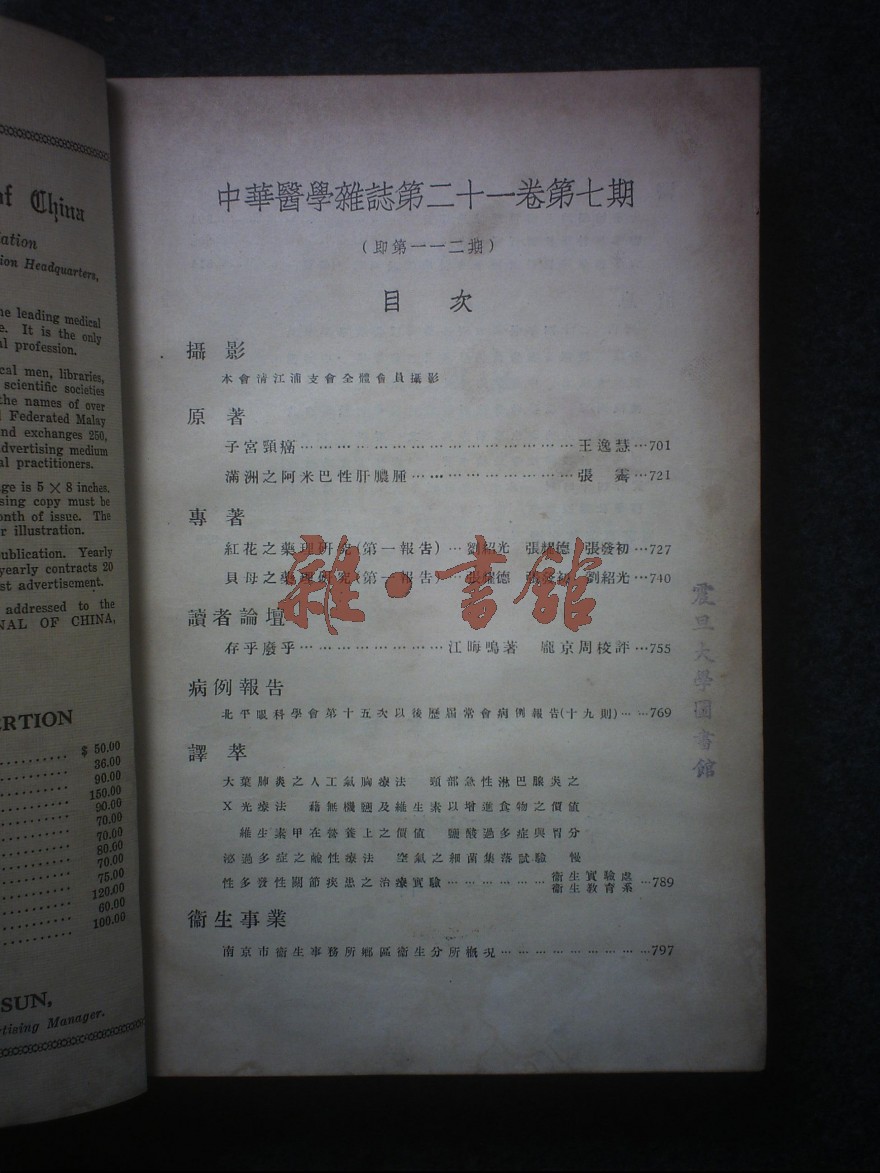 of China
iation
ion Headquarters,
he leading medical
e. It is the only
al profession.
cal men, libraries,
scientific societies
the names of over
Federated Malay
nd exchanges 250,
dvertising medium
al practitioners.
ge is 5 × 8 inches.
sing copy must be
onth of issue. The
r illustration.
ublication. Yearly
yearly contracts 20
st advertisement.
addressed to the
NAL OF CHINA,
ERTION
$ 50.00
36.00
90.00
150.00
90.00
70.00
70.00
80.00
70.00
75.00
120.00
60.00
100.00
SUN,
rtising Manager.
中華醫學雜誌第二十一卷第七期
(即第一一二期)
目 次
攝 影
本會清江浦支會全體會員攝影
原 著
子宮頸癌……………………………王逸慧…701
滿洲之阿米巴性肝膿腫…………………張 霽…721
專 著
紅花之藥理研究(第一報告)…劉紹光 張耀德 張發初…727
貝母之藥理研究(第一報告)…張耀德 張發初 劉紹光…740
讀者論壇
存乎廢乎…………………江晦鳴著 龐京周校評…755
病例報告
北平眼科學會第十五次以後歷屆常會病例報告(十九則)……769
譯 萃
大葉肺炎之人工氣胸療法 頸部急性淋巴腺炎之
X光療法 藉無機鹽及維生素以增進食物之價值
維生素甲在營養上之價值 鹽酸過多症與胃分
泌過多症之鹼性療法 空氣之細菌集落試驗 慢
性多發性關節疾患之治療實驗……………衞生實驗處
衞生教育系…789
衞生事業
南京市衞生事務所鄉區衞生分所概況…………………797
雜·書館
震旦大學圖書館